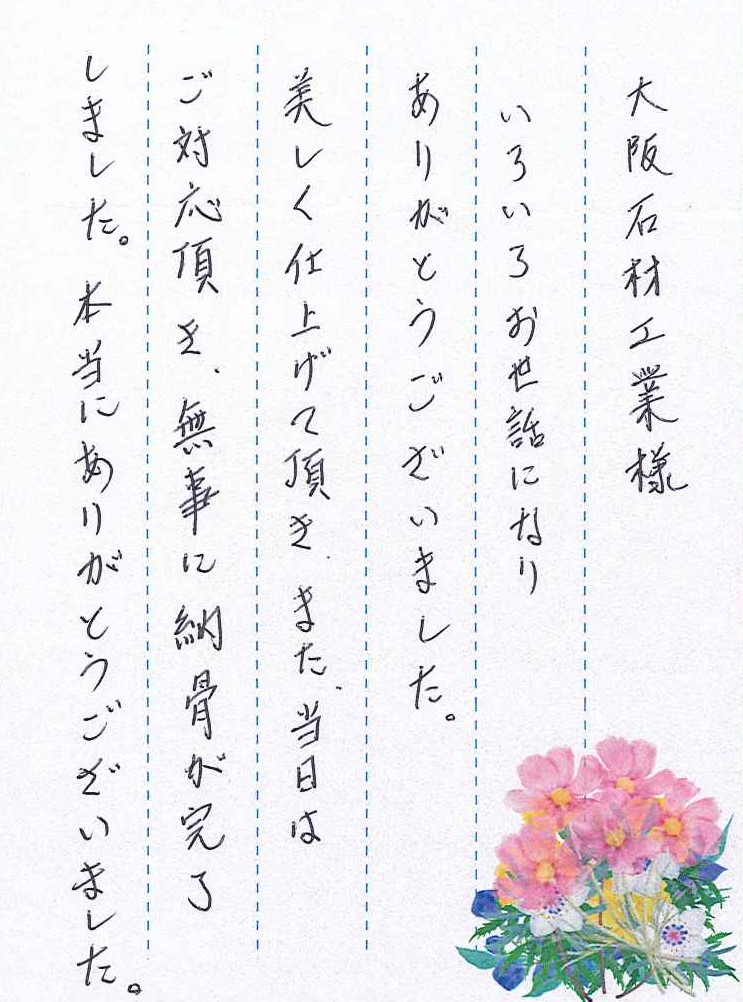 大阪石材工業様
いろいろお世話になり
ありがとうございました。
美しく仕上げて頂き、また、当日は
ご対応頂き、無事に納骨が完了
しました。本当にありがとうございました。